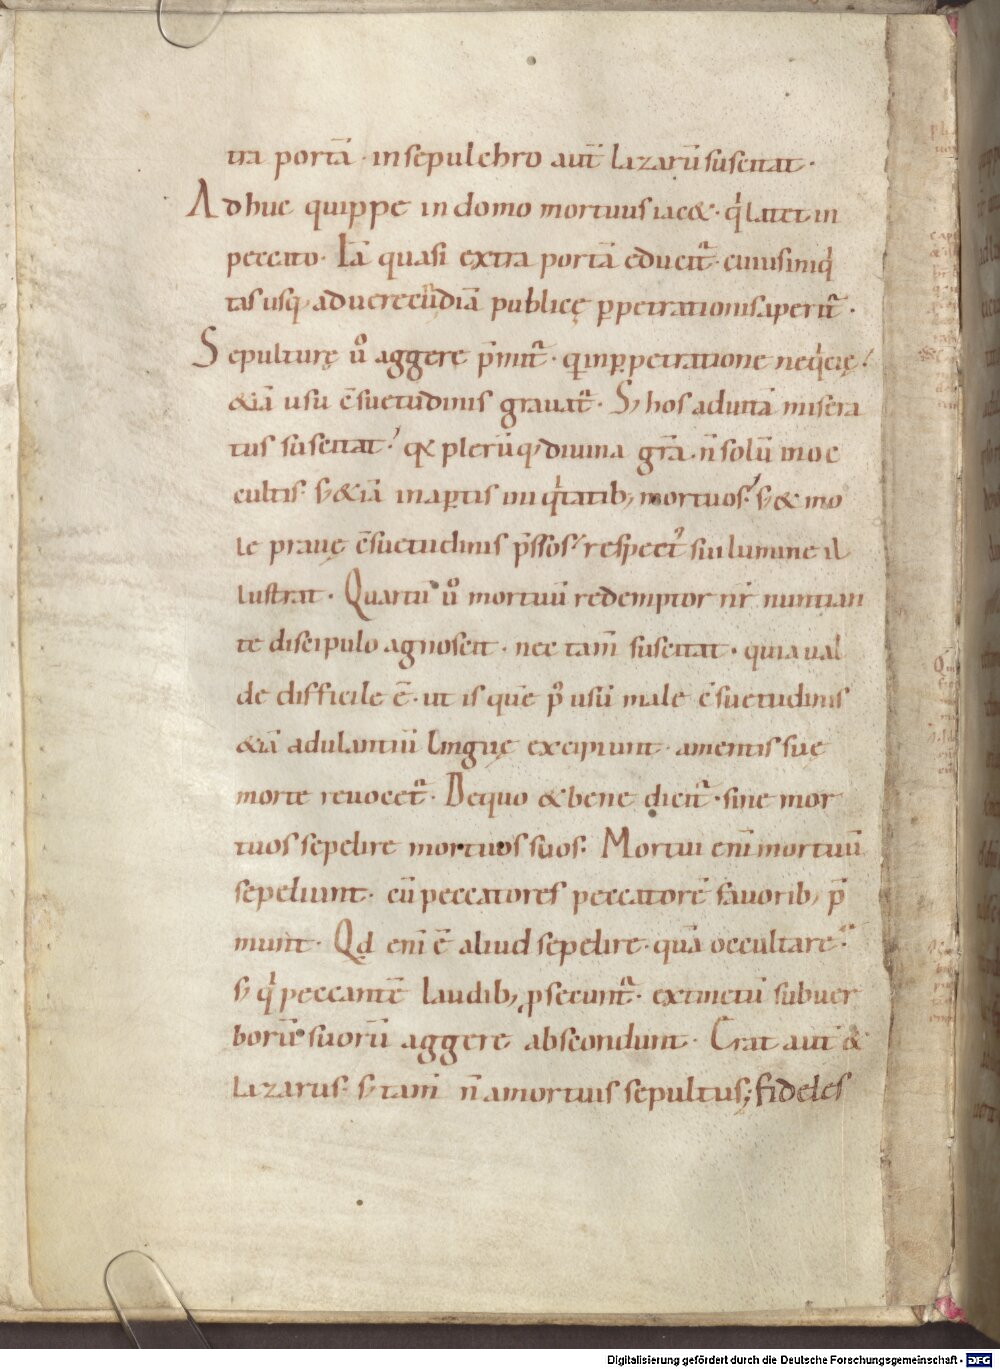 tra portā · in sepulchro aut̄ lazarū suscitat ·
Adhuc quippe in domo mortuus iac& · q̇ latet in
peccato · Iā quasi extra portā educit᷑ · cuius iniq̇
tas usq; ad uerecūdiā publicę ꝑpetrationis aperit᷑ ·
Sepulturę u̇o aggere p̄mit᷑ · qui in ꝑpetratione neq̇cię
&iā usu c̄suetudinis grauat᷑ · S; hos ad uitā misera
tus suscitat · quia plerūq; diuina grā · n̄ solū in oc
cultis · s; &iā in aꝑtis iniq̇tatib; mortuos · s; & mo
le prauę c̄suetudinis p̄ssos · respect᷒ sui lumine il
lustrat · Quartū u̇o mortuū redemptor nr̄ nuntian
te discipulo agnoscit · nec tam̄ suscitat · quia ual
de difficile ē · ut is quē p᷒ usū male c̄suetudinis
&iā adulantiū linguę excipiunt · a mentis suę
morte reuocet᷑ · De quo & bene dicit᷑ · sine mor
tuos sepelire mortuos suos · Mortui eni mortuū
sepeliunt · cū peccatores peccatorē fauorib; p̄
munt · Qd eni ē aliud sepelire · quā occultare ·
s; q̇ peccantē laudib; ꝓsecunt᷑ · extinctū sub uer
borū suorū aggere abscondunt · Erat aut̄ &
lazarus · s; tam̄ n̄ a mortuis sepultus; fideles
Digitalisierung gefördert durch die Deutsche Forschungsgemeinschaft - DFG